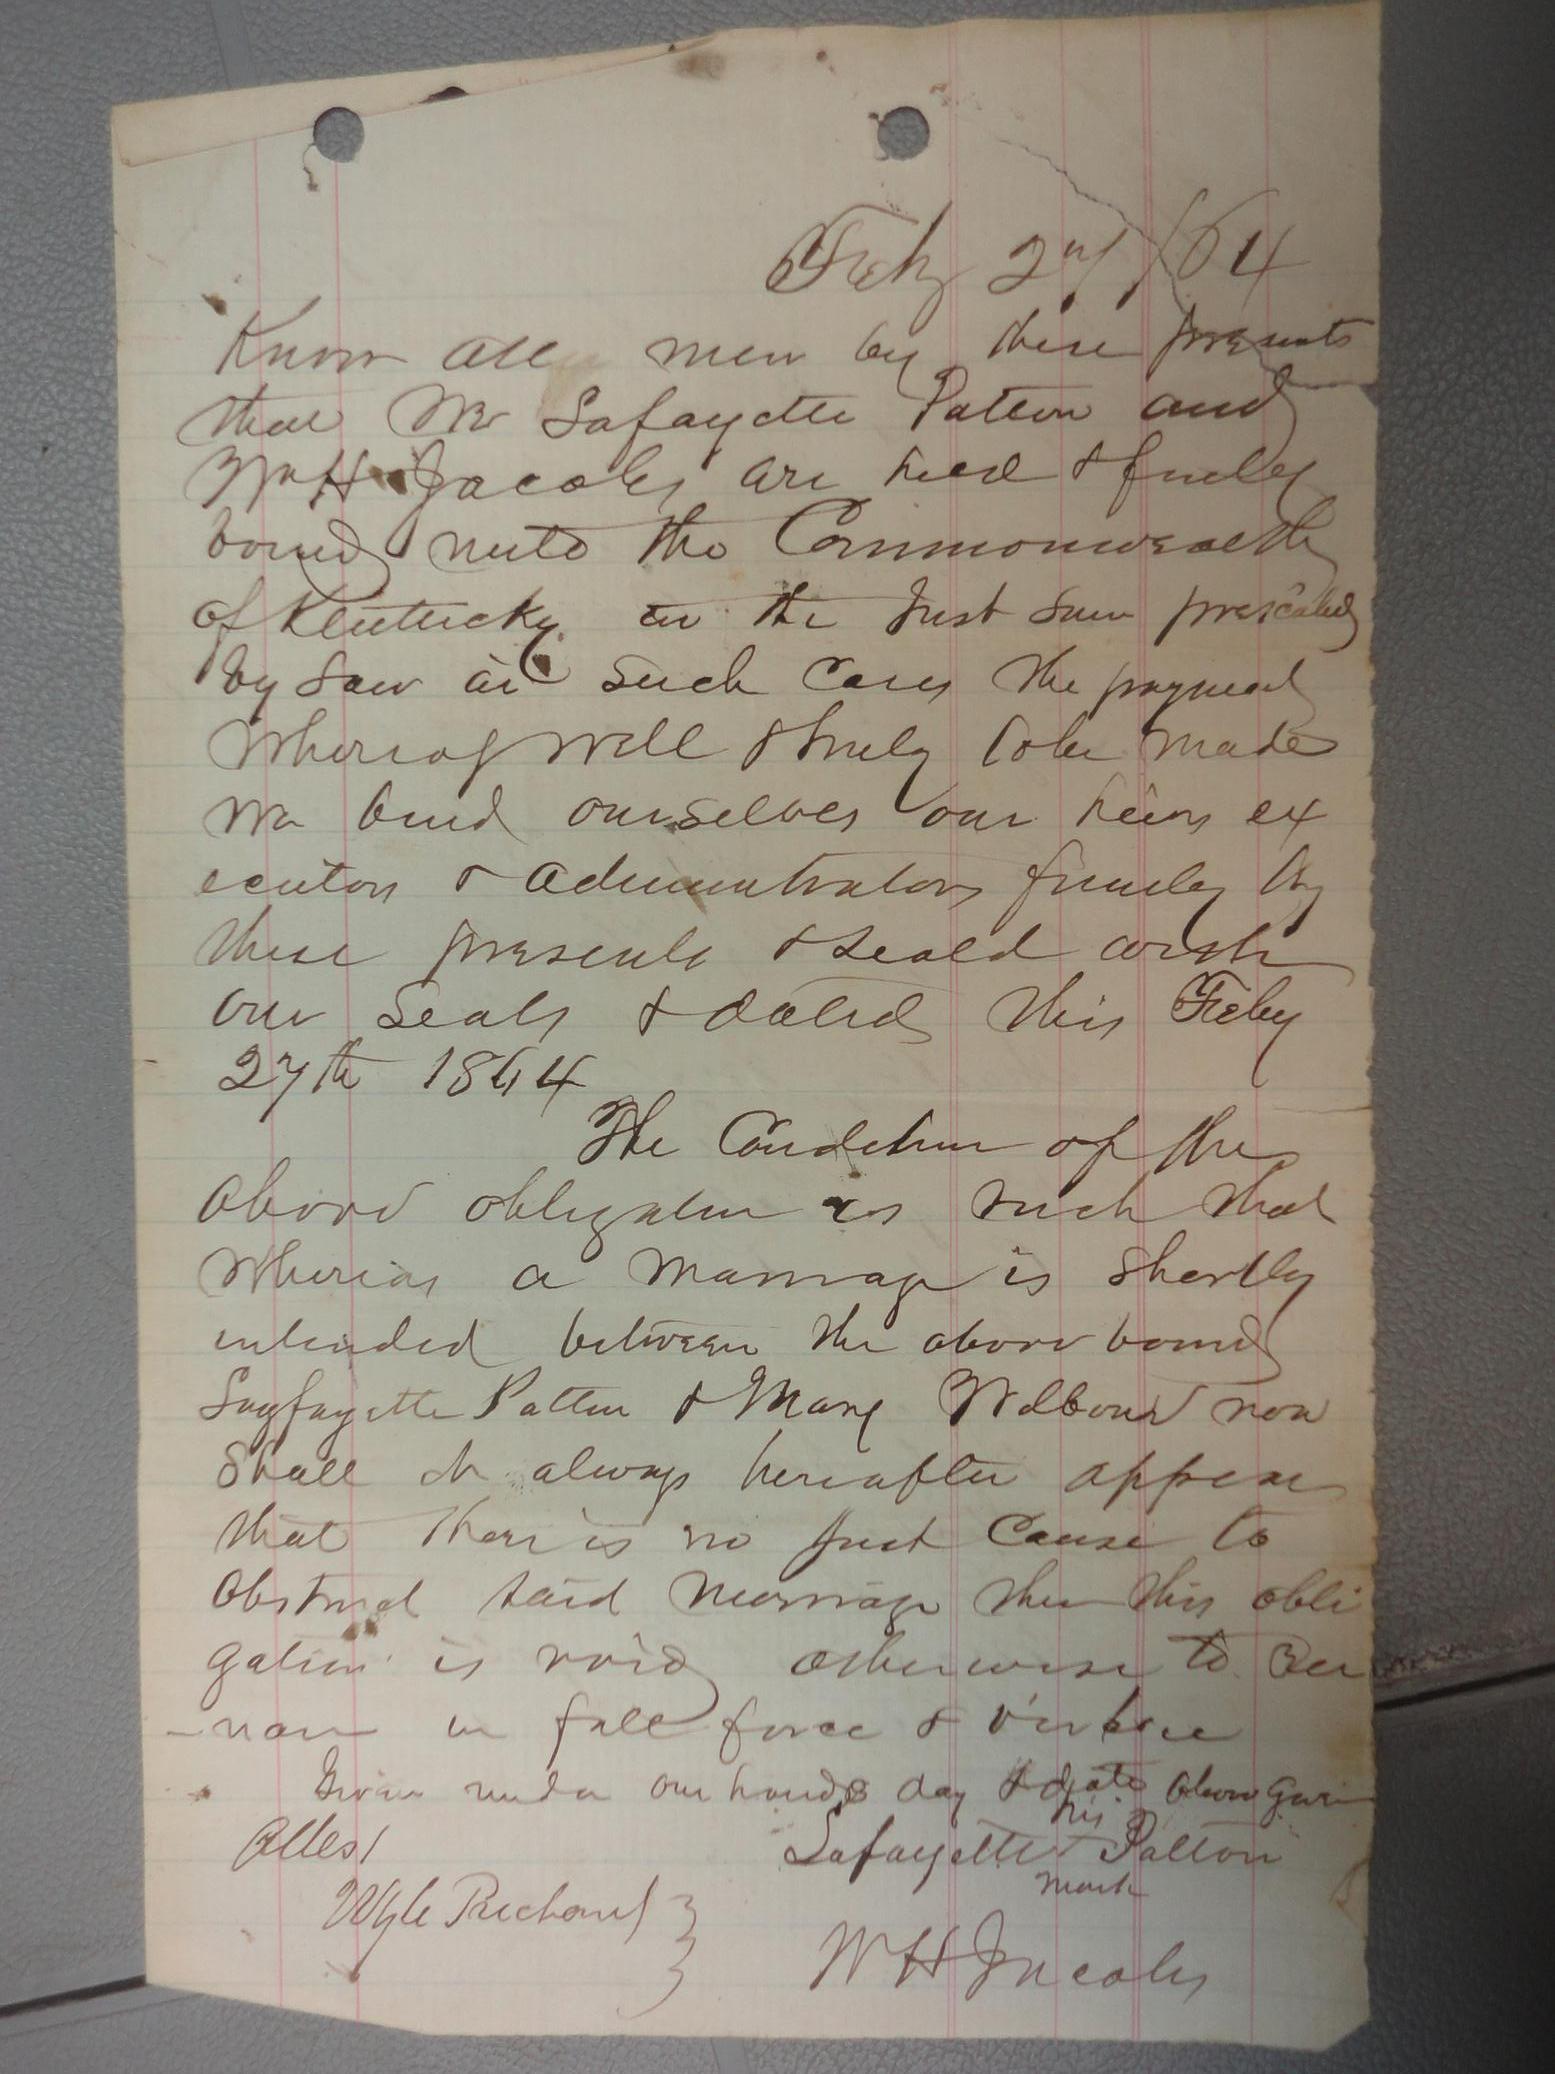 Feby 27/64
Know all men by these presents
that We Lafayette Patton and
Wm H Jacobs are held & firmly
bound unto the Commonwealth
of Kentucky in the Just Sum prescribed
by Law in such Cases the payment
Whereof well & truly to be made
We bind ourselves our heirs ex
ecutors & administrators firmly by
these presents & seald with
our seals & dated this Feby
27th 1864
The Condition of the
above obligation is such that
Whereas a marriage is shortly
intended between the above bound
Layfayette Patton & Mary now
Shall it always hereafter appear
that there is no just Cause to
obstruct said marriage then this obli
gation is void otherwise to Re
-main in full force & virtue
Given under our hands day & date above given
Attest
his
Lafayette + Patton
mark
Wyle
W H Jacobs